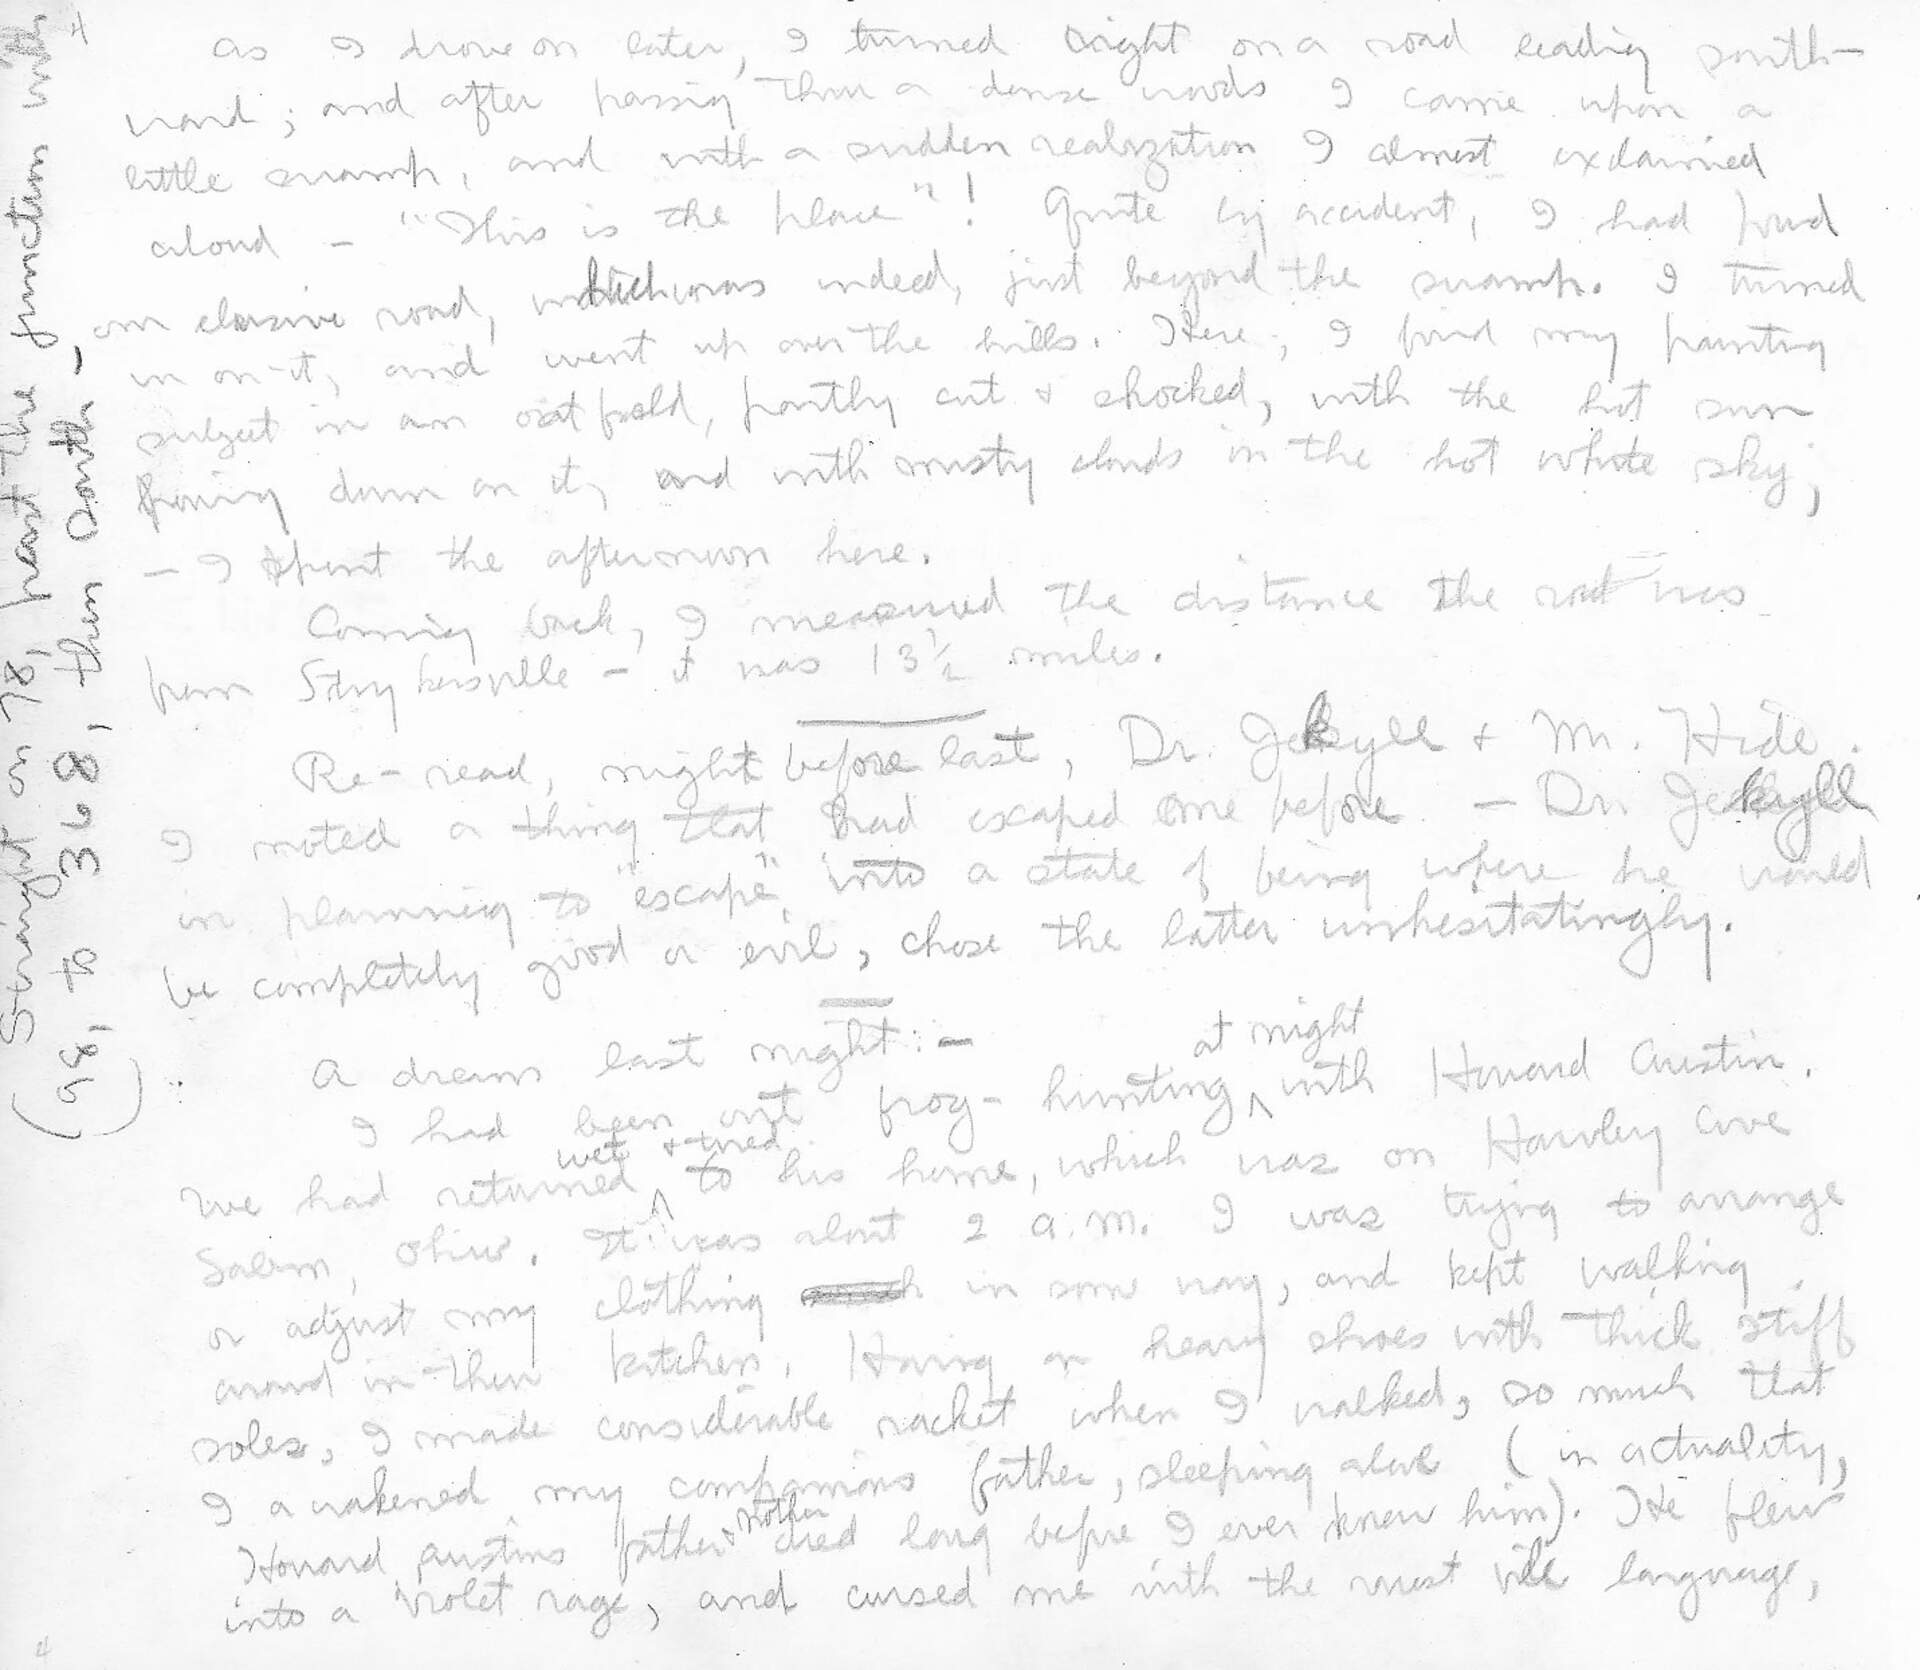 4
As I drove on later, I turned right on a road leading south-
ward; and after passing thru a dense woods I came upon a
little swamp, and with a sudden realization I almost exclaimed
aloud - "This is the place"! Quite by accident, I had found
my elusive road, which was indeed, just beyond the swamp. I turned
in on it, and went up over the hills. Here, I found my painting
subject in an oat field, partly cut & shocked, with the hot sun
pouring down on it, and with misty clouds in the hot white sky;
- I spent the afternoon here.
Coming back, I measured the distance the road was
from Strykersville - it was 13 1/2 miles.
Re-read, night before last, Dr. Jekyll & Mr. Hide.
I noted a thing that had escaped me before - Dr. Jekyll
in planning to "escape" into a state of being where he would
be completely good or evil, chose the latter unhesitatingly.
A dream last night: -
I had been out frog-hunting at night with Howard Austin.
We had returned wet & tired to his home, which was on Hawley Ave
Salem, Ohio. It was about 2 A.M. I was trying to arrange
or adjust my clothing in some way, and kept walking
around in their kitchen. Having on heavy shoes with thick stiff
soles, I made considerable racket when I walked, so much that
I awakened my companions father, sleeping above (in actuality,
Howard Austins father died long before I ever knew him). He flew
into a violet rage, and cursed me with the most vile language,
Straight on 78, past the junction with
(98, to 368, then South -)
4